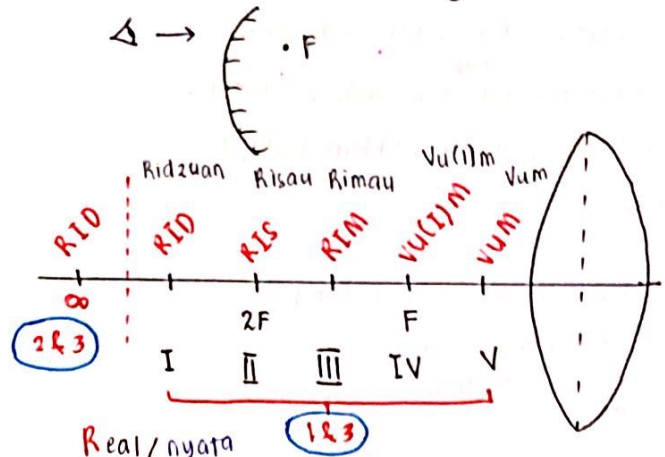 F
Vu(I)m
Ridzuan Risau Rimau Vum
RID RID RIS RIM VU(I)M VUM
∞ 2F F
2 & 3
I II III IV V
1 & 3
Real/nyata